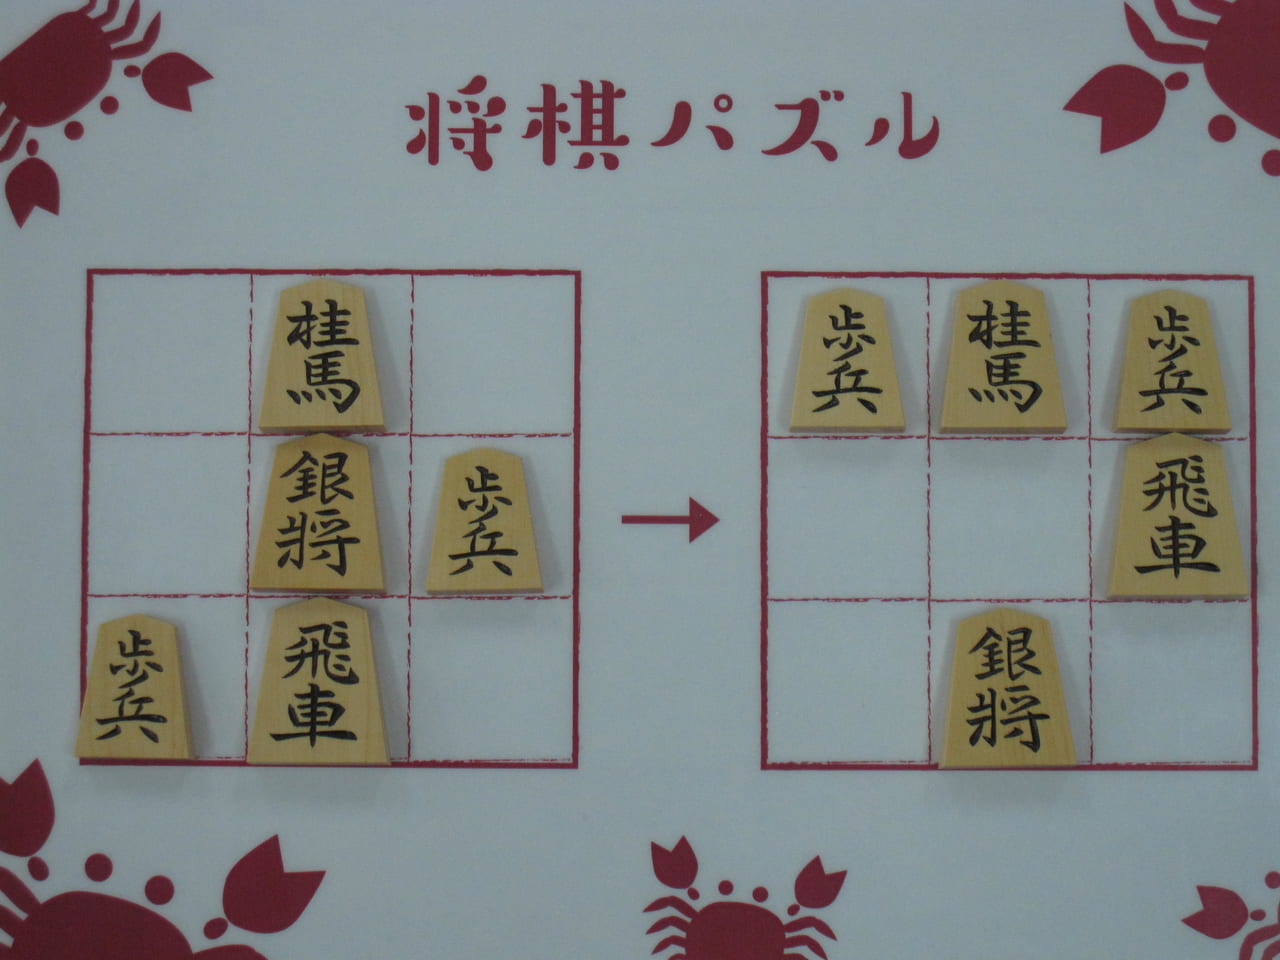 将棋パズル
桂馬
銀将
歩兵
歩兵
飛車
歩兵
桂馬
歩兵
飛車
銀将